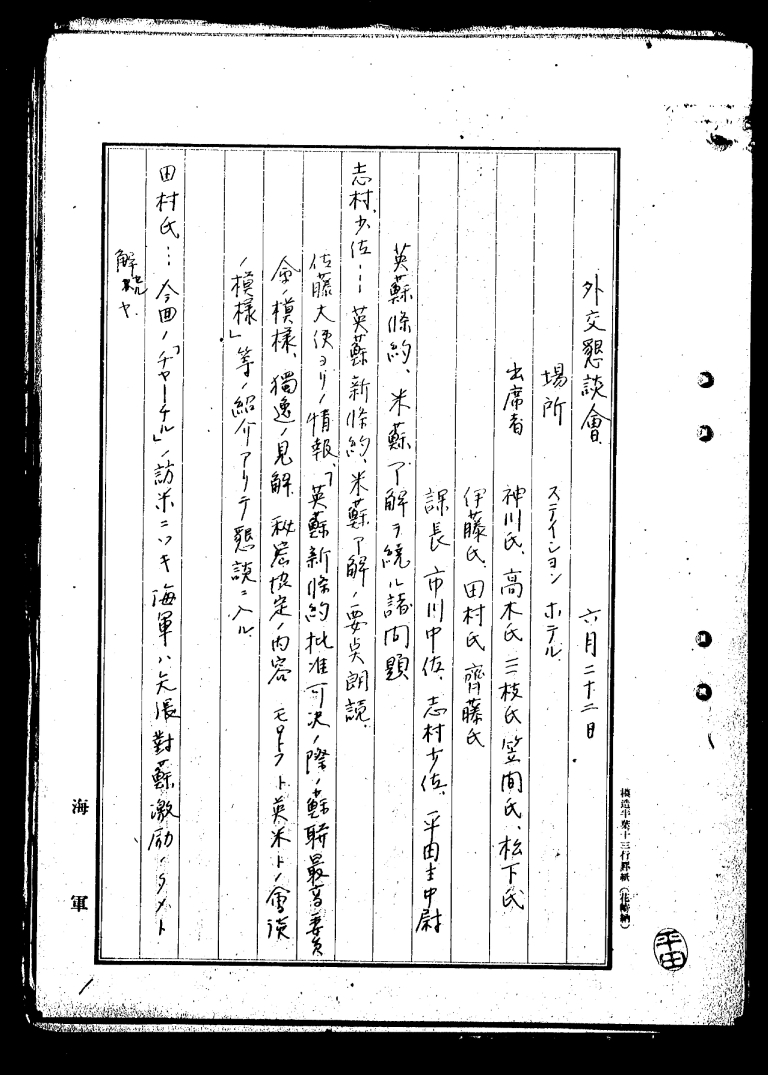 外交懇談會 六月二十二日
場所 ステイション ホテル
出席者 神川氏、高木氏 三枝氏 笠間氏、松下氏
伊藤氏、田村氏 齊藤氏
課長 市川中佐、志村少佐、平田主中尉
英蘇條約、米蘇了解ヲ繞ル諸問題
志村少佐… 英蘇新條約、米蘇了解ノ要点朗読、
佐藤大使ヨリノ情報、「英蘇新條約批准可決ノ際ノ蘇聯最高委員
會ノ模様、獨逸ノ見解、秘密協定ノ内容 モロトフト英米トノ會談
ノ模様」等ノ紹介アリテ懇談ニ入ル、
田村氏… 今回ノ「チャーチル」ノ訪米ニツキ海軍ハ矢張對蘇激励ノタメト
解セルヤ、
海軍
模造半葉十三行罫紙
平田